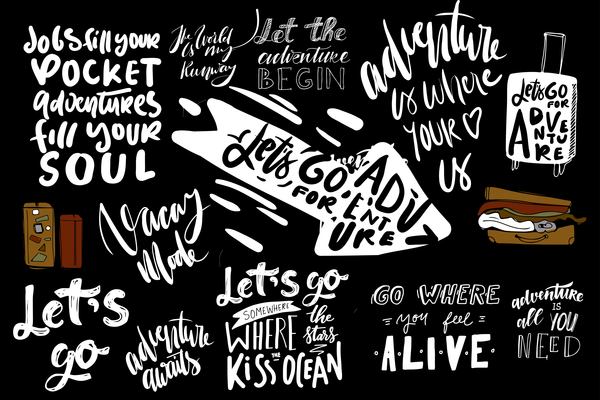 Jobs fill your
POCKET
adventures
fill your
SOUL
The World
Is my
Runway
Let the
adventure
BEGIN
adventure
is where
YOUR
is
Let's GO
FOR
ADVE
NTU
RE
Let's GO
FOR
ADV
ENT
URE
Vacay
Mode
Let's
go
adventure
awaits
Let's go
SOMEWHERE
WHERE the
stars
KiSS THE OCEAN
GO WHERE
you feel
ALIVE
adventure
IS
all YOU
NEED